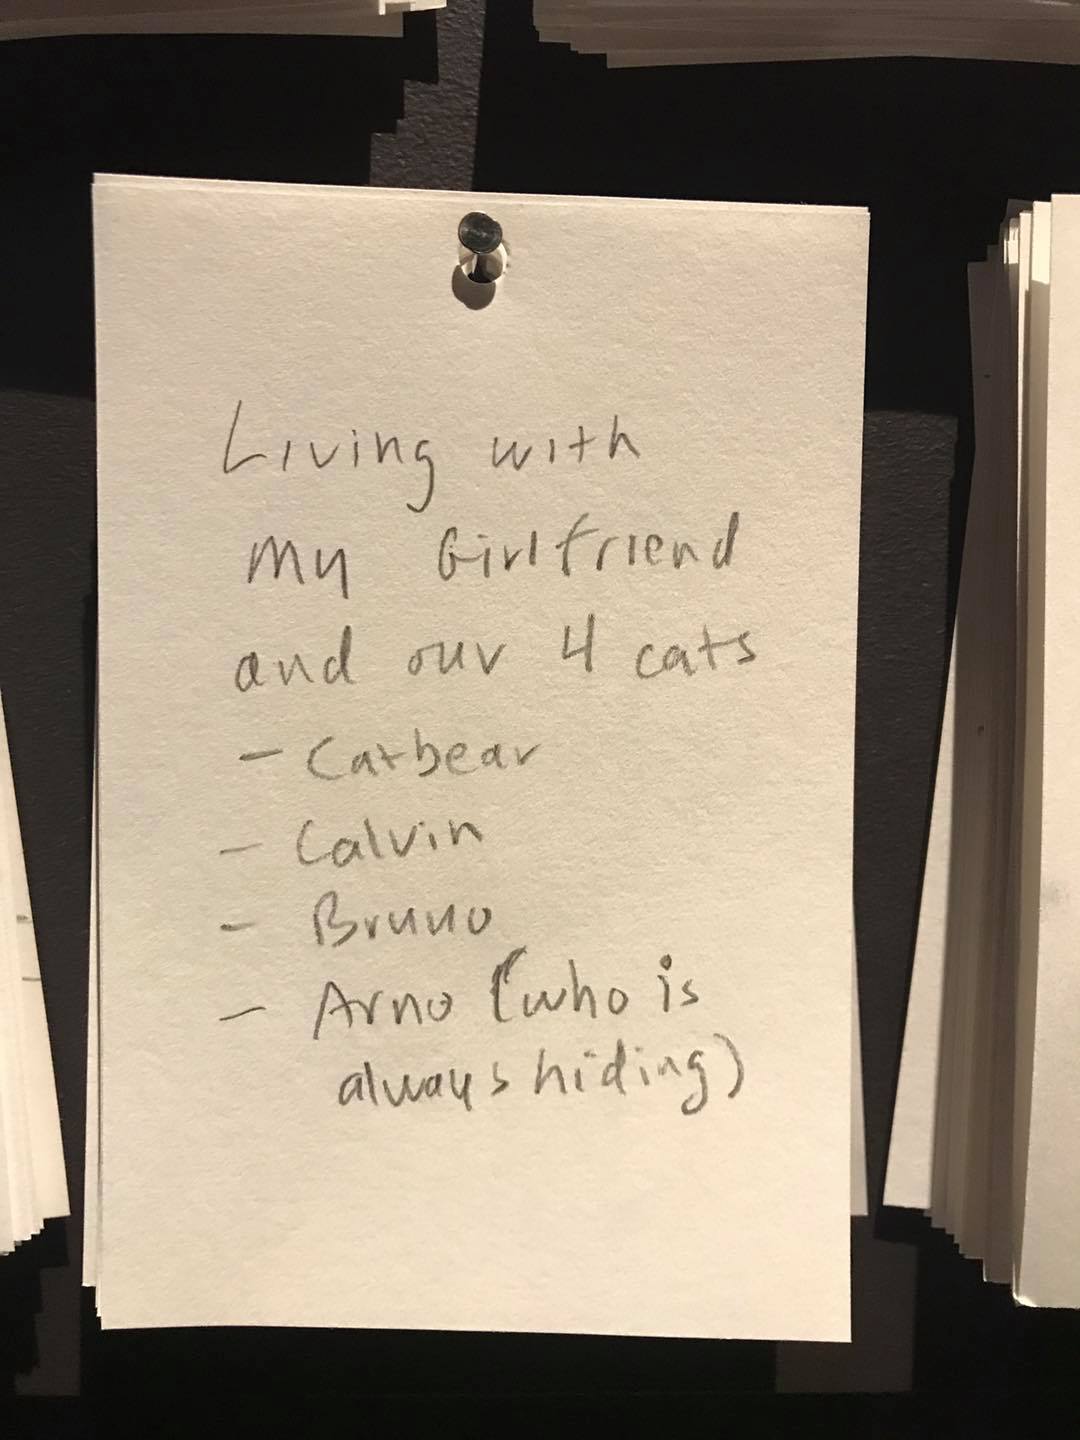 Living with
my Girlfriend
and our 4 cats
- Catbear
- Calvin
- Bruno
- Arno (who is
always hiding)